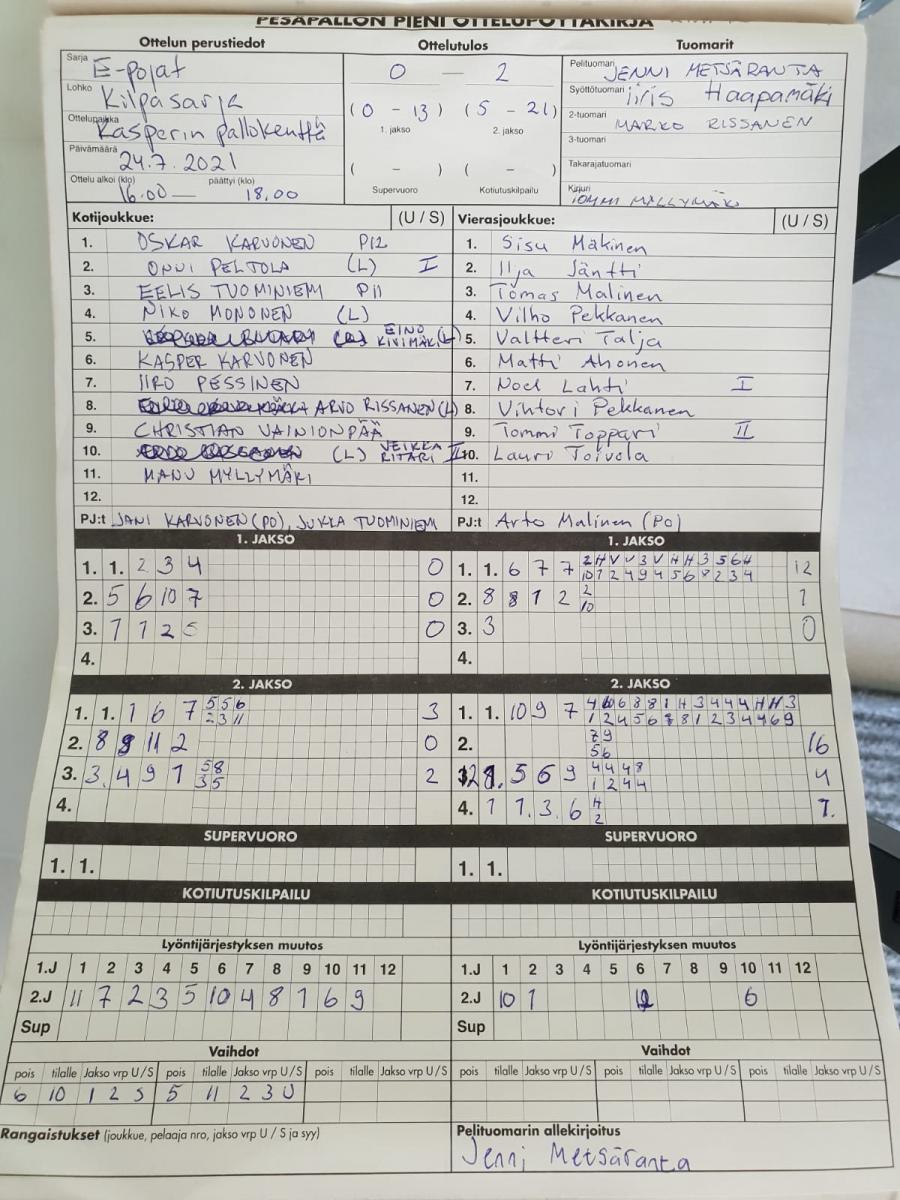 PESÄPALLON PIENI OTTELUPÖYTÄKIRJA
Ottelun perustiedot
Sarja
E-pojat
Lohko
Kilpasarja
Ottelupaikka
Kasperin pallokenttä
Päivämäärä
24.7.2021
Ottelu alkoi (klo) päättyi (klo)
16.00 — 18.00
Ottelutulos
0 — 2
(0 - 13) (5 - 21)
1. jakso 2. jakso
( - ) ( - )
Supervuoro Kotiutuskilpailu
Tuomarit
Pelituomari JENNI METSÄRANTA
Syöttötuomari iiris Haapamäki
2-tuomari MARKO RISSANEN
3-tuomari
Takarajatuomari
Kirjuri TOMMI MYLLYMÄKI
Kotijoukkue: (U / S)
1. OSKAR KARVONEN P12
2. ONNI PELTOLA (L) I
3. EELIS TUOMINIEMI P11
4. NIKO MONONEN (L)
5. EINO KIVIMÄKI (L)
6. KASPER KARVONEN
7. IIRO PESSINEN
8. ARVO RISSANEN (L)
9. CHRISTIAN VAINIONPÄÄ
10. (L) VEIKKA RITARI II
11. MANU MYLLYMÄKI
12.
PJ:t JANI KARVONEN (PO), JUKKA TUOMINIEMI
Vierasjoukkue: (U / S)
1. Sisu Mäkinen
2. Ilja Jäntti
3. Tomas Malinen
4. Vilho Pekkanen
5. Valtteri Talja
6. Matti Ahonen
7. Noel Lahti I
8. Vihtori Pekkanen
9. Tommi Toppari II
10. Lauri Toivola
11.
12.
PJ:t Arto Malinen (PO)
1. JAKSO
1. 1. 2 3 4 0
2. 5 6 10 7 0
3. 7 1 2 5 0
4.
1. JAKSO
1. 1. 6 7 7 2 H V V 3 V H H 3 5 6 H 12
10 1 2 4 9 4 5 6 8 2 3 4
2. 8 8 1 2 2 1
10
3. 3 0
4.
2. JAKSO
1. 1. 1 6 7 5 5 6 3
2 3 11
2. 8 9 11 2 0
3. 3. 4 9 1 5 8 2
3 5
4.
2. JAKSO
1. 1. 10 9 7
2. 7 9 16
5 6
5 6 9 4 4 4 8 4
1 2 4 4
4. 1 1. 3. 6 H 1.
2
SUPERVUORO
1. 1.
SUPERVUORO
1. 1.
KOTIUTUSKILPAILU
KOTIUTUSKILPAILU
Lyöntijärjestyksen muutos
1.J 1 2 3 4 5 6 7 8 9 10 11 12
2.J 11 7 2 3 5 10 4 8 1 6 9
Sup
Lyöntijärjestyksen muutos
1.J 1 2 3 4 5 6 7 8 9 10 11 12
2.J 10 1 6
Sup
Vaihdot
pois tilalle Jakso vrp U / S pois tilalle Jakso vrp U / S pois tilalle Jakso vrp U / S
6 10 1 2 S 5 11 2 3 U
Vaihdot
pois tilalle Jakso vrp U / S pois tilalle Jakso vrp U / S pois tilalle Jakso vrp U / S
Rangaistukset (joukkue, pelaaja nro, jakso vrp U / S ja syy)
Pelituomarin allekirjoitus
Jenni Metsäranta